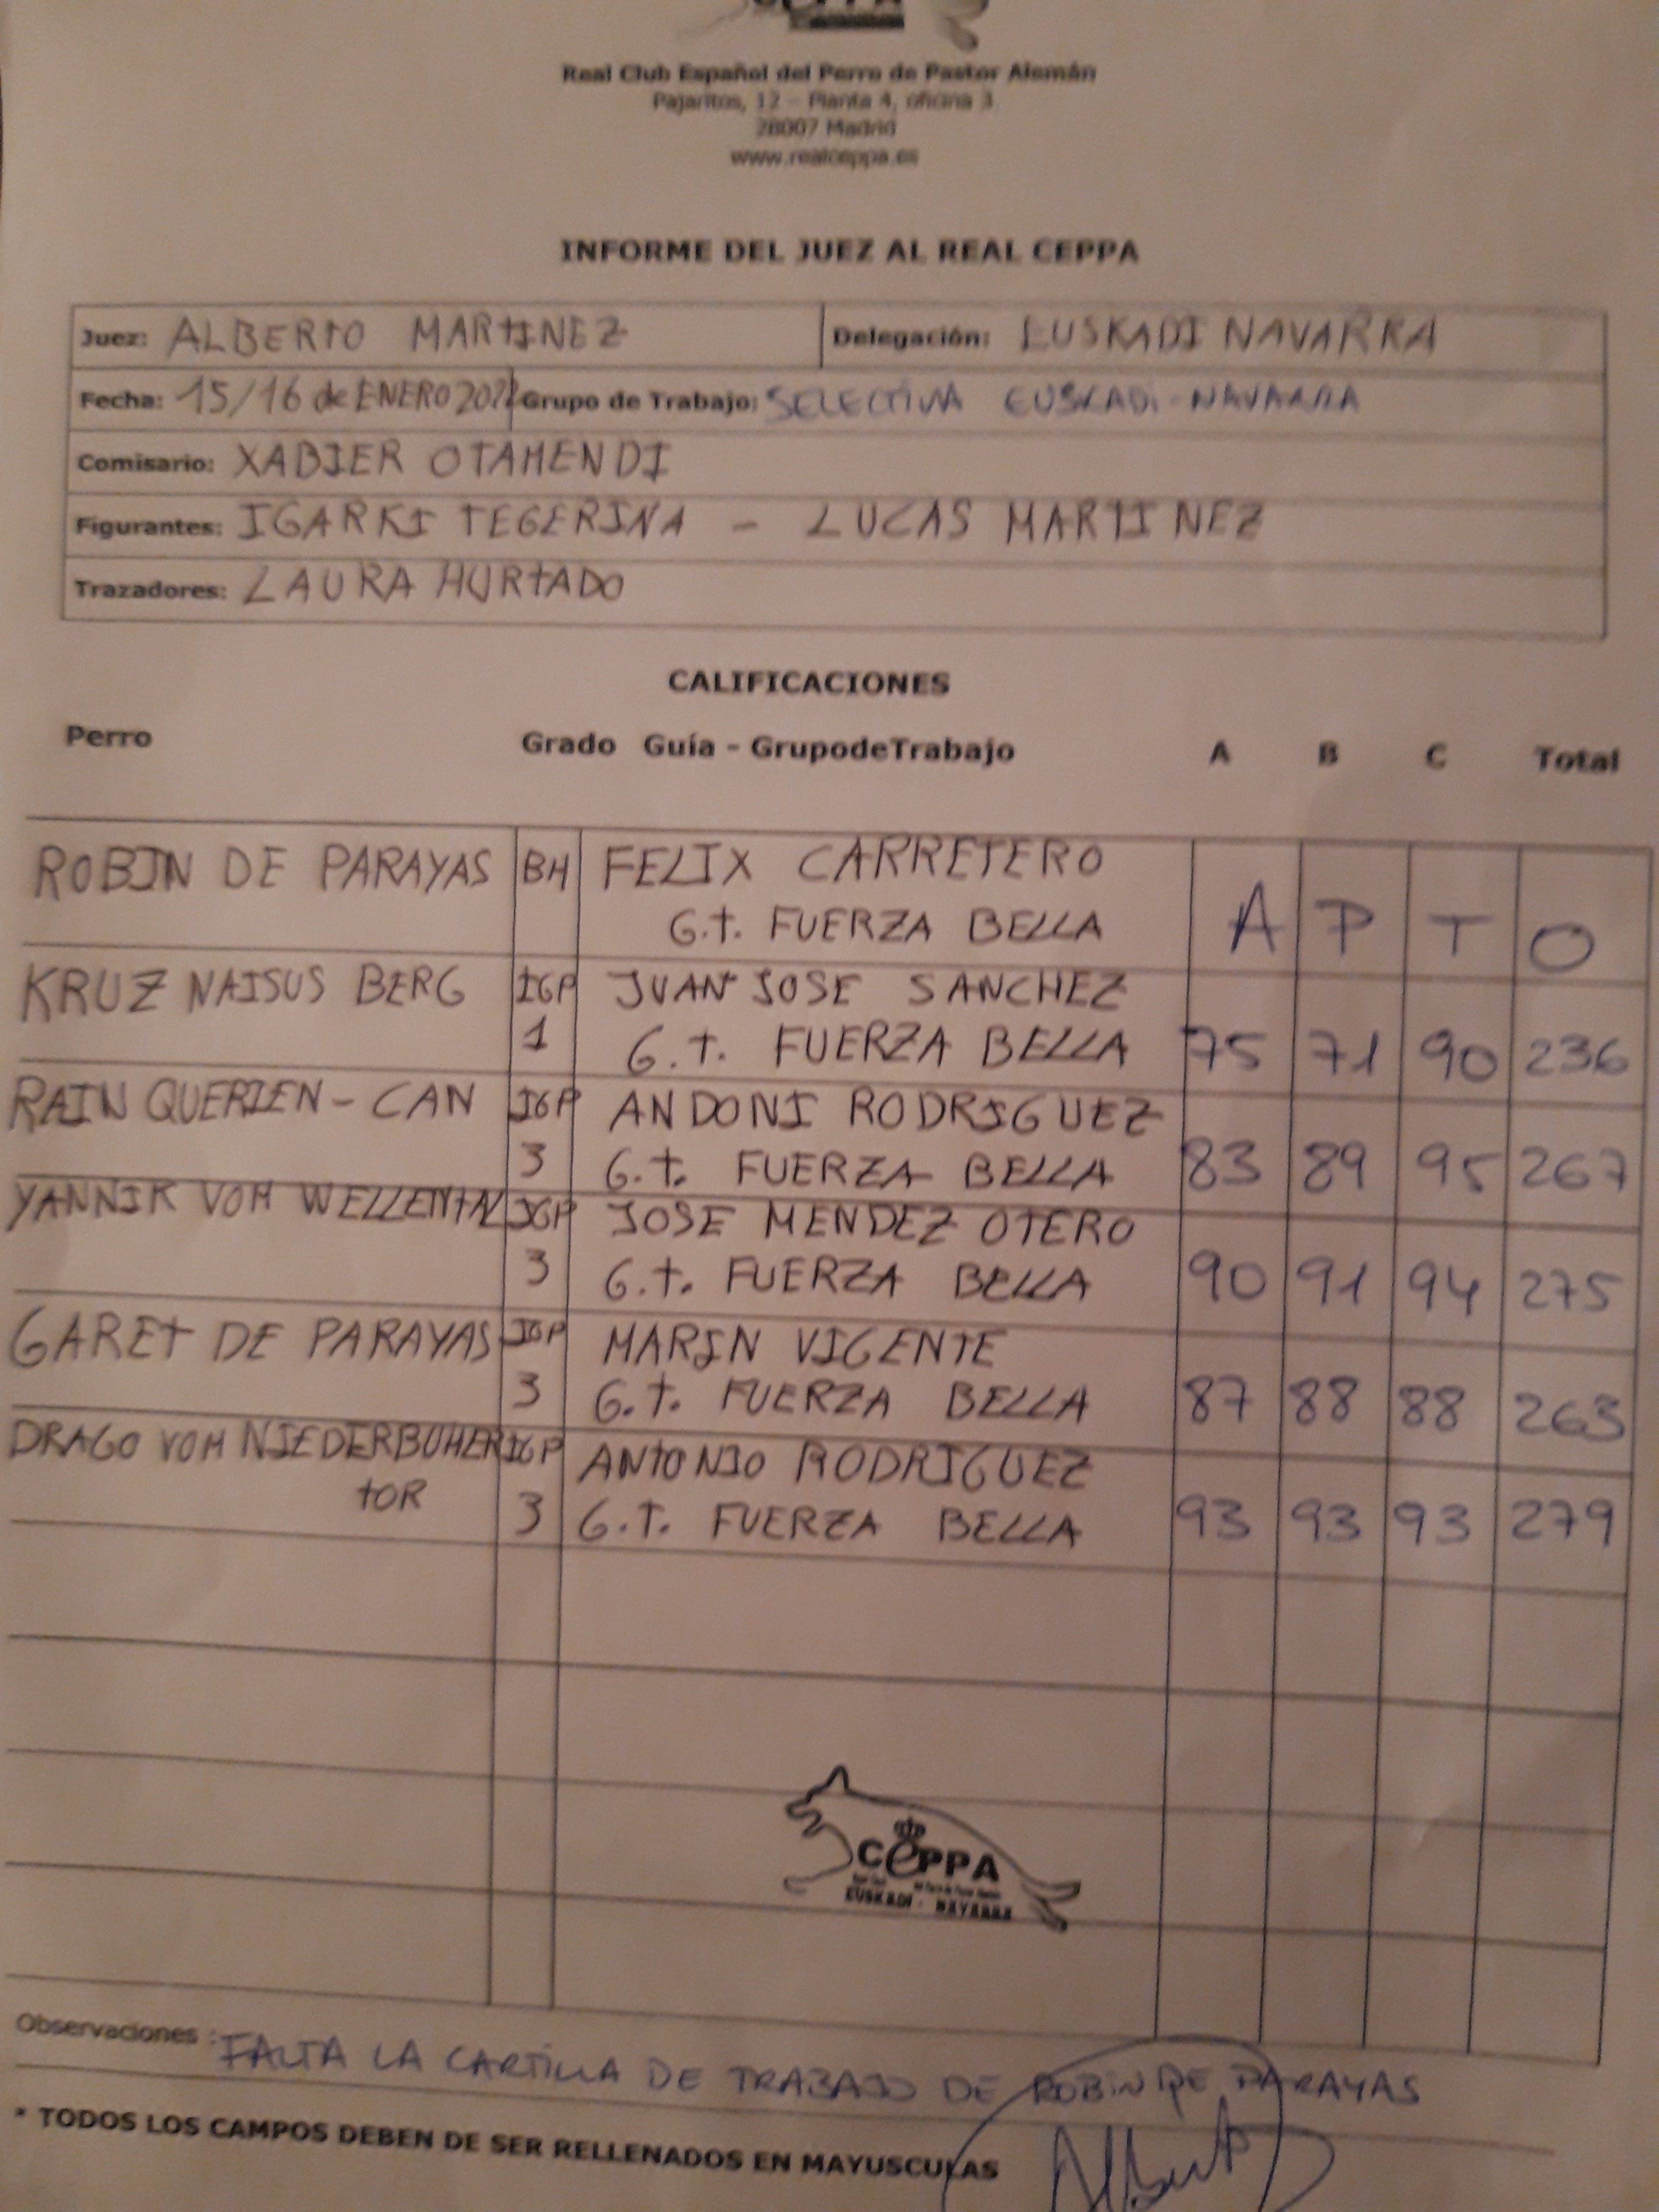 CEPPA
Real Club Español del Perro de Pastor Alemán
Pajaritos, 12 - Planta 4, oficina 3.
28007 Madrid
www.realceppa.es
INFORME DEL JUEZ AL REAL CEPPA
Juez: ALBERTO MARTINEZ Delegación: EUSKADI NAVARRA
Fecha: 15/16 de ENERO 2022 Grupo de Trabajo: SELECTIVA EUSKADI-NAVARRA
Comisario: XABIER OTAMENDI
Figurantes: IGARKI TEGERINA - LUCAS MARTINEZ
Trazadores: LAURA HURTADO
CALIFICACIONES
Perro Grado Guía - GrupodeTrabajo A B C Total
ROBIN DE PARAYAS BH FELIX CARRETERO
G.T. FUERZA BELLA A P T O
KRUZ NAISUS BERG IGP JUAN JOSE SANCHEZ
1 G.T. FUERZA BELLA 75 71 90 236
RAIN QUERIEN-CAN IGP ANDONI RODRIGUEZ
3 G.T. FUERZA BELLA 83 89 95 267
YANNIK VOM WELLENTAL IGP JOSE MENDEZ OTERO
3 G.T. FUERZA BELLA 90 91 94 275
GARET DE PARAYAS IGP MARIN VIGENTE
3 G.T. FUERZA BELLA 87 88 88 263
DRAGO VOM NIEDERBUHER IGP ANTONIO RODRIGUEZ
TOR 3 G.T. FUERZA BELLA 93 93 93 279
CEPPA
EUSKADI - NAVARRA
Observaciones: FALTA LA CARTILLA DE TRABAJO DE ROBIN DE PARAYAS
* TODOS LOS CAMPOS DEBEN DE SER RELLENADOS EN MAYUSCULAS